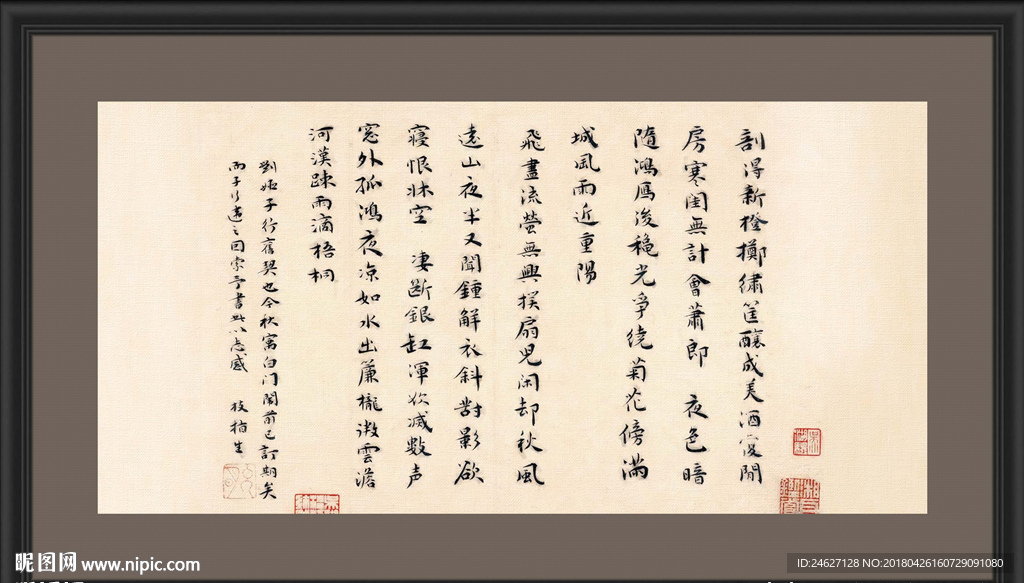 剖得新橙擲繡筐釀成美酒復閒
房寒閨無計會蕭郎 夜色暗
隨鴻雁後穐光爭繞菊花傍滿
城風雨近重陽
飛盡流螢無興撲扇兒閑却秋風
遠山夜半又聞鍾解衣斜對影欲
寢恨牀空 凄斷銀缸渾欲滅數声
窓外孤鴻夜凉如水出簾櫳微雲澹
河漢踈雨滴梧桐
劉姬子行舊契也今秋寓白门闱前已訂期矣
而子行遣之因索予書此以志感
枝指生
昵图网 www.nipic.com
ID:24627128 NO:20180426160729091080